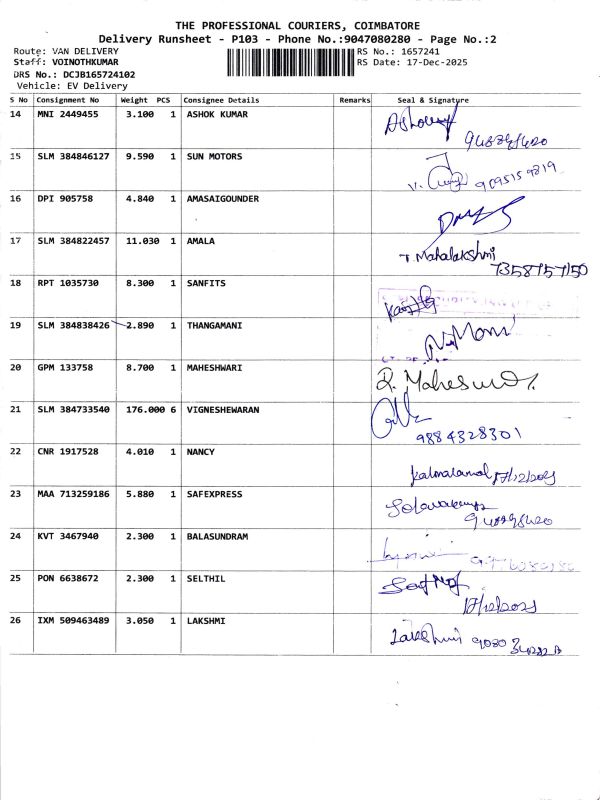 THE PROFESSIONAL COURIERS, COIMBATORE
Delivery Runsheet - P103 - Phone No.:9047080280 - Page No.:2
Route: VAN DELIVERY RS No.: 1657241
Staff: VOINOTHKUMAR RS Date: 17-Dec-2025
DRS No.: DCJB165724102
Vehicle: EV Delivery
S No Consignment No Weight PCS Consignee Details Remarks Seal & Signature
14 MNI 2449455 3.100 1 ASHOK KUMAR
15 SLM 384846127 9.590 1 SUN MOTORS
9095159819
16 DPI 905758 4.840 1 AMASAIGOUNDER
17 SLM 384822457 11.030 1 AMALA T. Mahalakshmi
7358757150
18 RPT 1035730 8.300 1 SANFITS
19 SLM 384838426 2.890 1 THANGAMANI
20 GPM 133758 8.700 1 MAHESHWARI
21 SLM 384733540 176.000 6 VIGNESHEWARAN
9884328301
22 CNR 1917528 4.010 1 NANCY
23 MAA 713259186 5.880 1 SAFEXPRESS
24 KVT 3467940 2.300 1 BALASUNDRAM
25 PON 6638672 2.300 1 SELTHIL
26 IXM 509463489 3.050 1 LAKSHMI Lakshmi